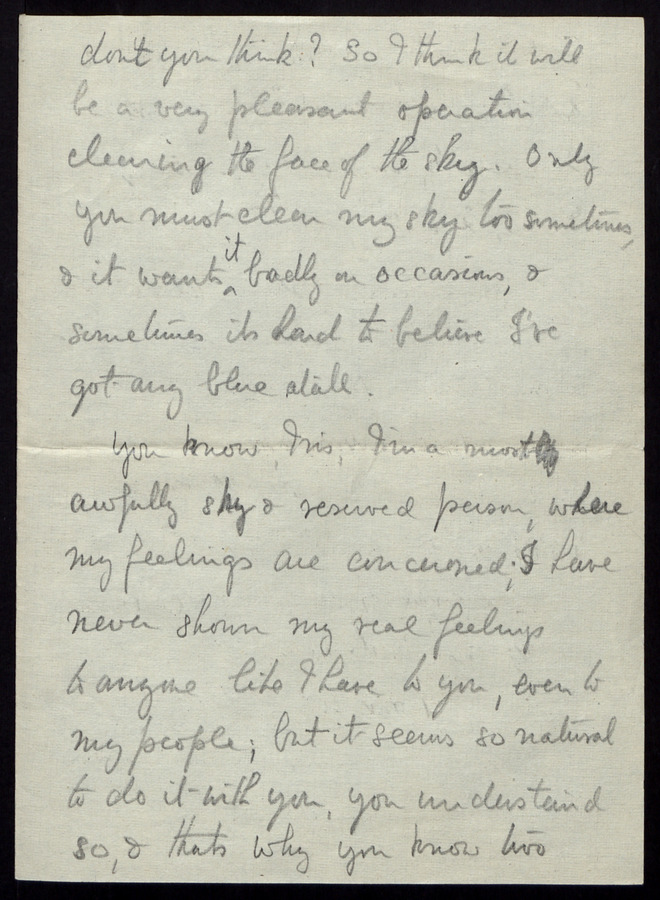 don't you think? So I think it will
be a very pleasant operation
cleaning the face of the sky. Only
you must clean my sky too sometimes,
& it wants it badly on occasions, &
sometimes its hard to believe I've
got any blue atall.
You know, Iris, I'm a most
awfully shy & reserved person, where
my feelings are concerned; I have
never shown my real feelings
to anyone like I have to you, even to
my people; but it seems so natural
to do it with you, you understand
so, & thats why you know two